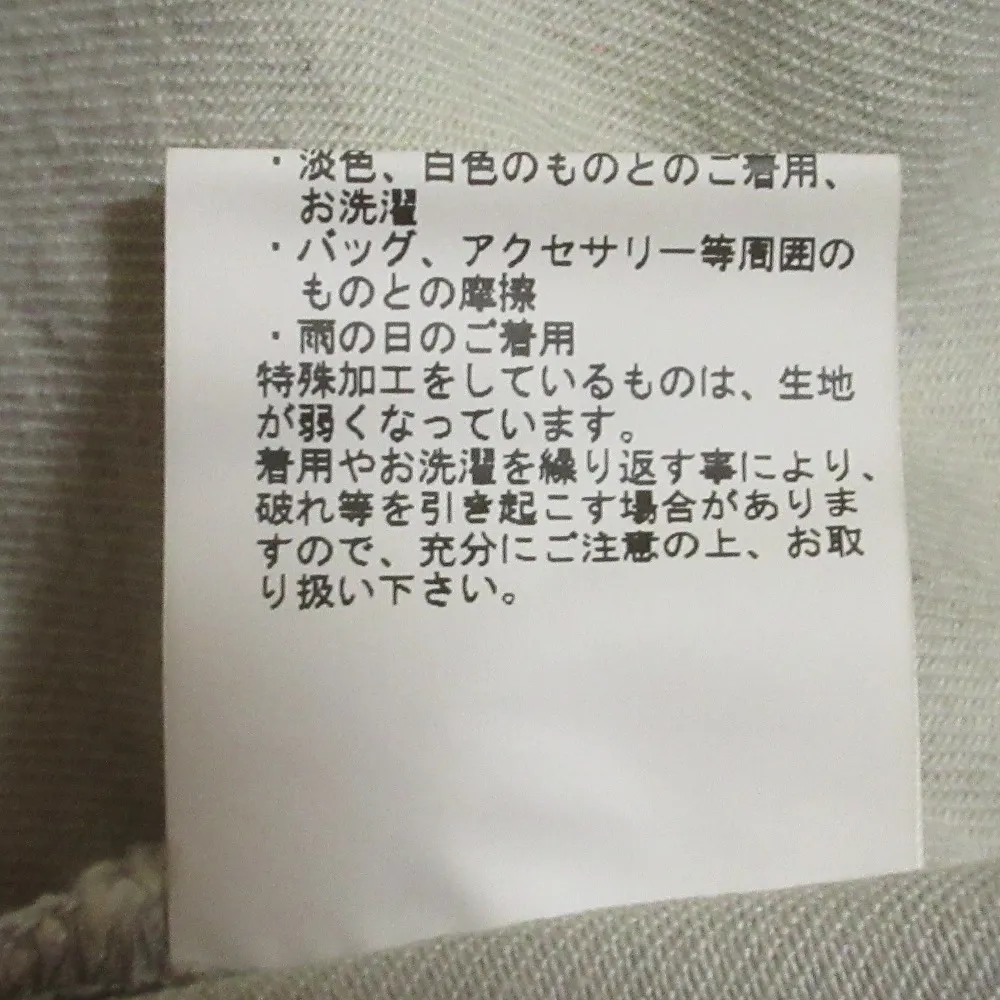 ・淡色、白色のものとのご着用、
お洗濯
・バッグ、アクセサリー等周囲の
ものとの摩擦
・雨の日のご着用
特殊加工をしているものは、生地
が弱くなっています。
着用やお洗濯を繰り返す事により、
破れ等を引き起こす場合がありま
すので、充分にご注意の上、お取
り扱い下さい。